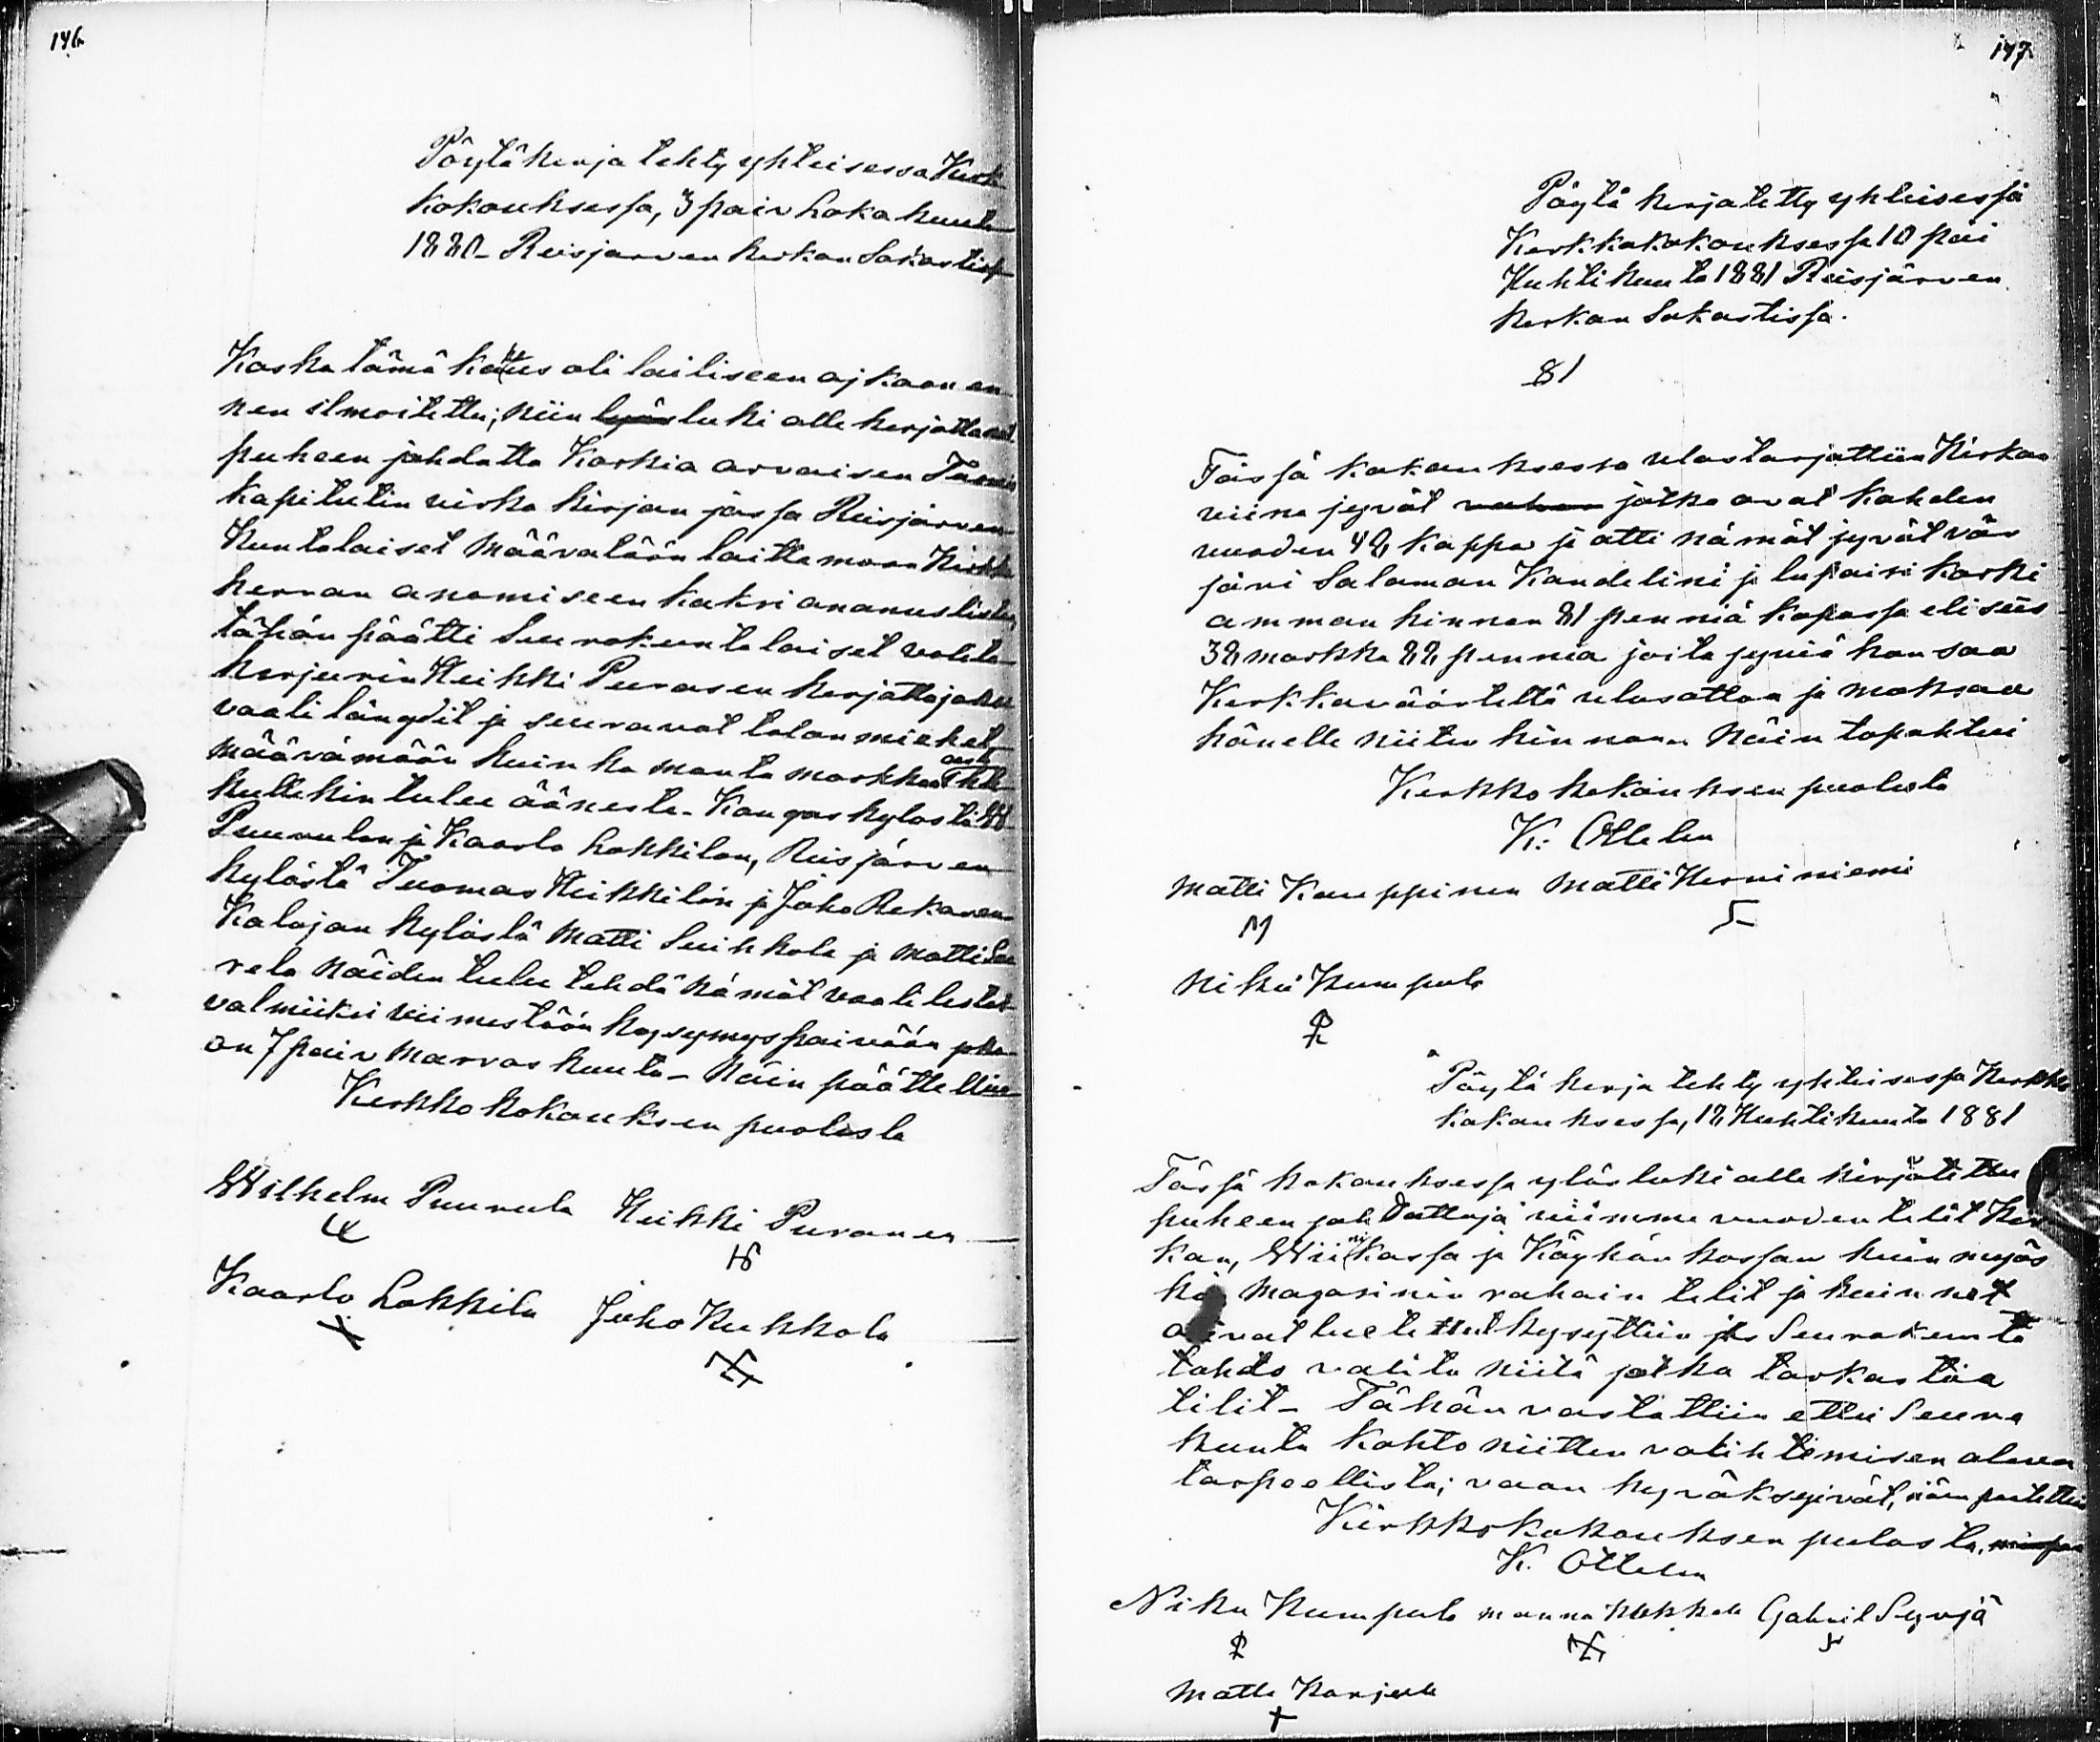 146.
Pöytäkerja tehty yhteisessa Kerk
kokouksessa, 3 paiv Loka kuuta
1880 - Reisjarven kerkon Sakastissa
Koska tämä kokus oli lailiseen ajkaan en
nen ilmoitettu; niin luki alle kerjottanut
puheen johdatta Korkia arvaisen Tuomio
kapitulin virka kirjan jossa Reisjärven
Kuntalaiset määrätään laittamaan Kirkko
herran anomiseen kaksi anomuslistaa
tähän päätti Seurakuntalaiset valita
kerjurin Heikki Purasen kerjottajaksi
vaali längdit ja seuravat talon miehet
määrämään kuinka monta markkaa
kullekin tulee ääneste - Kangaskylästä W
Puurulan ja Kaarlo Lokkilan, Reisjärven
kylästä Tuomas Heikkilän ja Joho Rekosen
Kalajan kylästä Matti Suihkola ja Matti Saa
rela Näiden tulee tehdä nämät vaali listat
valmiiksi viimestään kysymyspaivään joka
on 7 paiv Marraskuuta - Näin päätettiin
Kerkko kokouksen puolesta
Wilhelm Puurula Heikki Puranen
Kaarlo Lokkila Juho Kukkola
147
Pöytä kerja tetty yhteisessä
Kerkkokokouksessa 10 päi
Huhti kuuta 1881 Reisjärven
kerkon Sakastissa.
§1
Tässä kokouksessa ulostarjottiin Kirkon
viina jyvät jotka ovat kahden
vuoden 48 kappa ja otti nämät jyvät vär
järi Salaman Kandelini ja lupaisi korki
amman hinnan 81 penniä kapassa eli siis
38 markka 88 pennia joita jyviä han saa
Kerkkaväärteltä ulosottaa ja maksaa
hänelle niiten hinnan Näin tapahtui
Kerkko kokouksen puolesta
K. Ottelin
Matti Kauppinen Matti Herniniemi
Niku Kumpula
Pöytä kerja tehty yhteisessa Kerkko
kokouksessa, 18 Huhtikuuta 1881
Tässä kokouksessa ylösluki alle kirjotettu
puheen johdattaja viimme vuoden tilit Kir
kon, Wiinikassa ja Köyhän kassan kuin myös
kin magasinin rahain tilit ja kuin net
olivat luetettut kysyttiin jos Seurakunta
tahto valita niitä jotka tarkastaa
tilit - Tähän vastattiin ettei Seura
kunta kahto niitten valihtemisen olevan
tarpeellista; vaan hyväksyivät, näin päätettiin
Kirkkokokouksen puolasta,
K. Ottelin
Niku Kumpula manna Kukkola Gabriel Syrjä
Matti Karjula